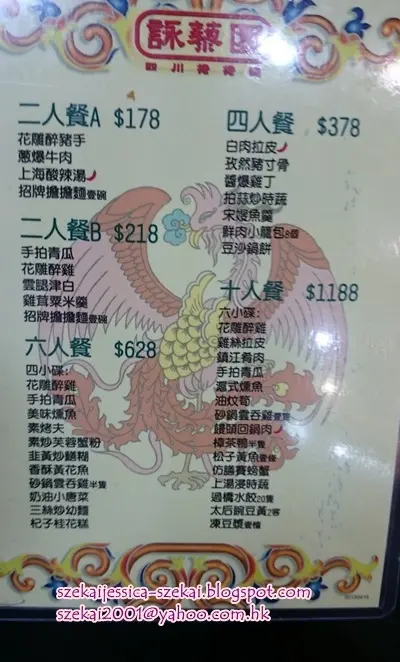 詠藜園
四川擔擔麵
二人餐A $178
花雕醉豬手
蔥爆牛肉
上海酸辣湯
招牌擔擔麵壹碗
二人餐B $218
手拍青瓜
花雕醉雞
雲腿津白
雞茸粟米羹
招牌擔擔麵壹碗
六人餐 $628
四小碟:
花雕醉雞
手拍青瓜
美味燻魚
素烤夫
素炒芙蓉蟹粉
韭黃炒鱔糊
香酥黃花魚
砂鍋雲吞雞半隻
奶油小唐菜
三絲炒幼麵
杞子桂花糕
四人餐 $378
白肉拉皮
孜然豬寸骨
醬爆雞丁
拍蒜炒時蔬
宋嫂魚羹
鮮肉小籠包8個
豆沙鍋餅
十人餐 $1188
六小碟:
花雕醉雞
雞絲拉皮
鎮江肴肉
手拍青瓜
滬式燻魚
油炆筍
砂鍋雲吞雞壹隻
饅頭回鍋肉
樟茶鴨半隻
松子黃魚壹條
仿膳賽螃蟹
上湯浸時蔬
過橋水餃20隻
太后豌豆黃2客
凍豆漿壹樽
szekaijessica-szekai.blogspot.com
szekai2001@yahoo.com.hk